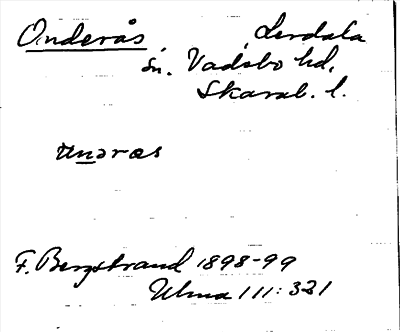 Onderås Lerdala
sn. Vadsbo hd.
Skarab. l.
unəras
F. Bergstrand 1898-99
Ulma 111:321